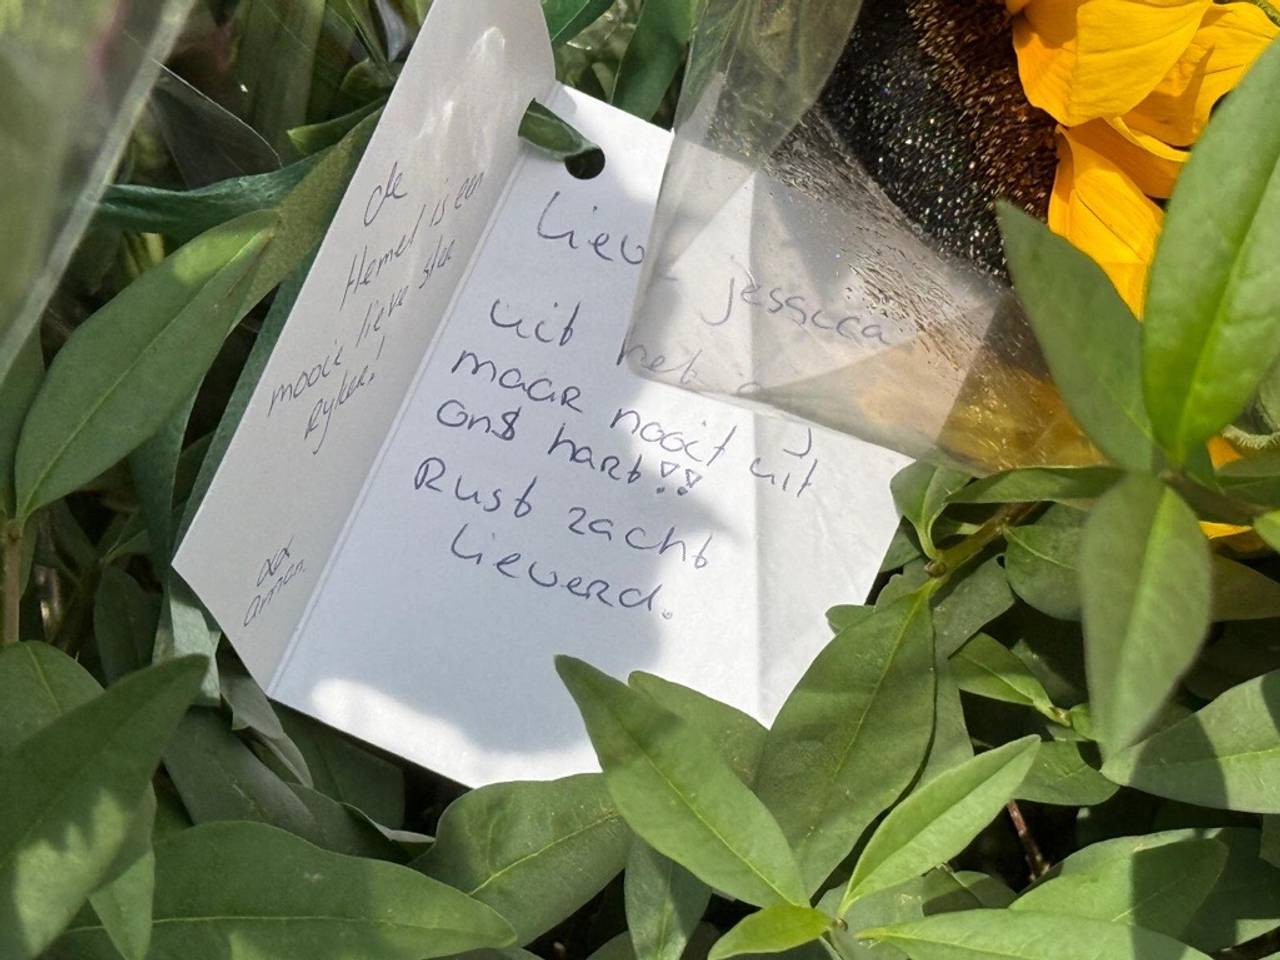 de
Hemel is een
mooie lieve ster
Ryker!
xx
Lieve Jessica
uit het
maar nooit uit
ons hart!!
Rust zacht
Lieverd.